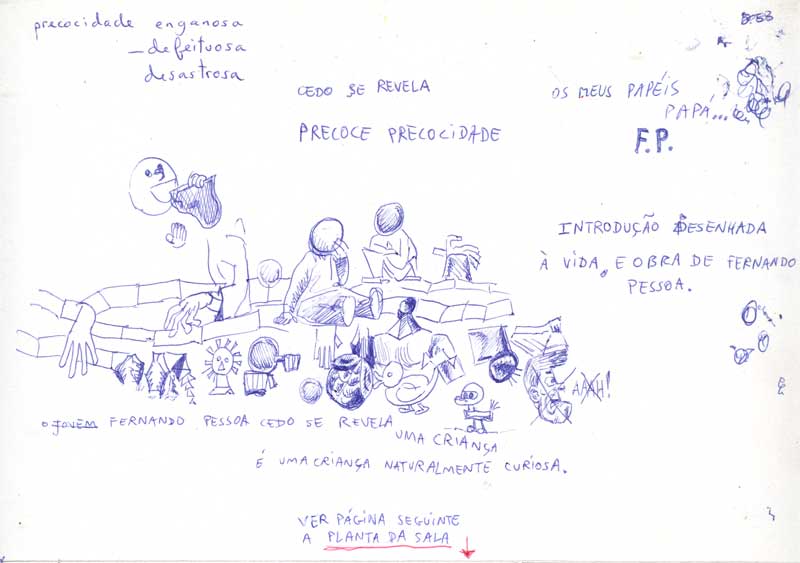 precocidade enganosa
— defeituosa
desastrosa
CEDO SE REVELA
PRECOCE PRECOCIDADE
OS MEUS PAPÉIS
PAPÁ...
F.P.
INTRODUÇÃO DESENHADA
À VIDA E OBRA DE FERNANDO
PESSOA.
AAAH!
O JOVEM FERNANDO PESSOA CEDO SE REVELA UMA CRIANÇA
É UMA CRIANÇA NATURALMENTE CURIOSA.
VER PÁGINA SEGUINTE
A PLANTA DA SALA